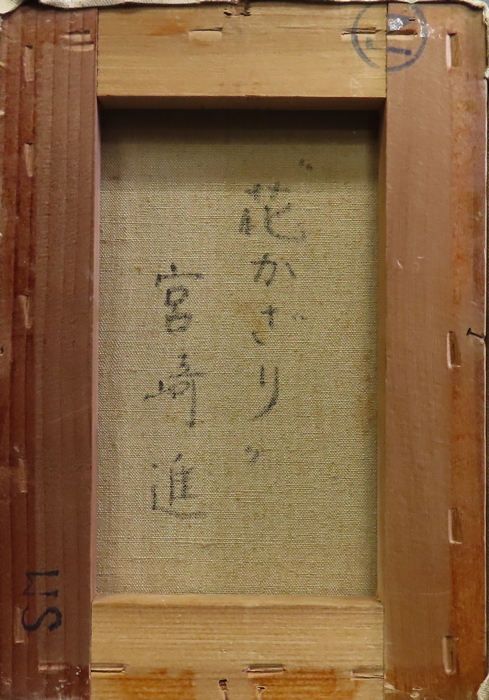 "花かざり"
宮崎進
SM